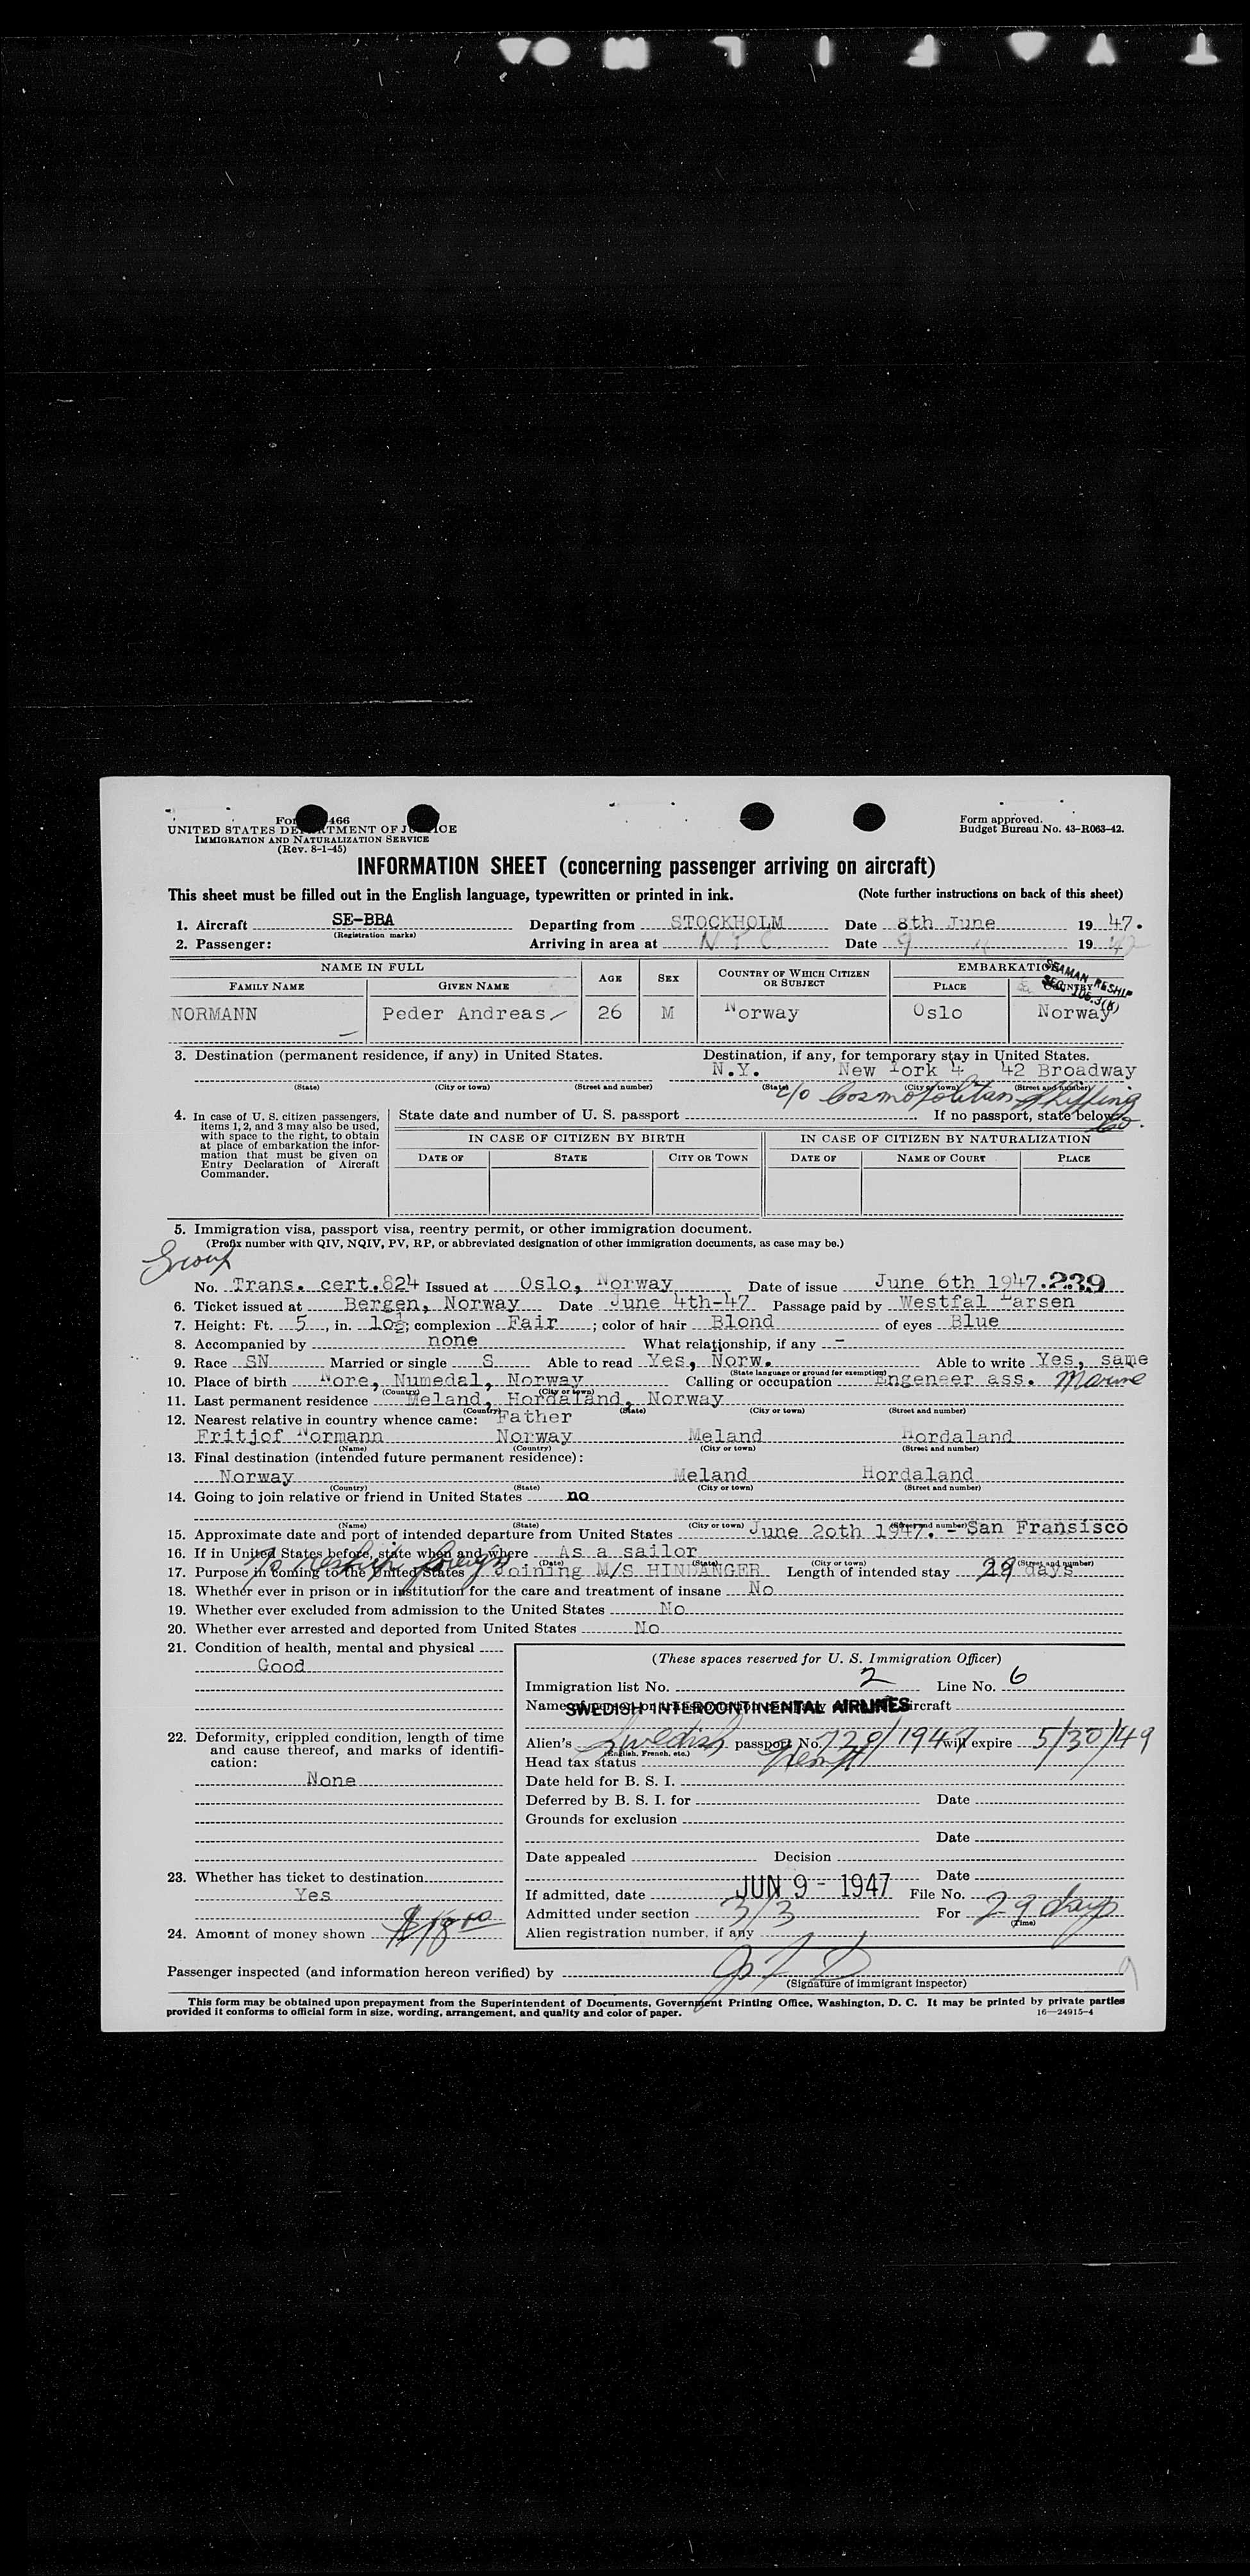 Form 466
UNITED STATES DEPARTMENT OF JUSTICE
IMMIGRATION AND NATURALIZATION SERVICE
(Rev. 8-1-45)
Form approved.
Budget Bureau No. 43-R063-42.
INFORMATION SHEET (concerning passenger arriving on aircraft)
This sheet must be filled out in the English language, typewritten or printed in ink. (Note further instructions on back of this sheet)
1. Aircraft SE-BBA Departing from STOCKHOLM Date 8th June 19 47.
(Registration marks)
2. Passenger: Arriving in area at N Y C Date 9 " 19 47
NAME IN FULL AGE SEX COUNTRY OF WHICH CITIZEN OR SUBJECT EMBARKATION
FAMILY NAME GIVEN NAME PLACE COUNTRY
SEAMAN RESHIP
SEC. 105.3(K)
NORMANN Peder Andreas 26 M Norway Oslo Norway
3. Destination (permanent residence, if any) in United States. Destination, if any, for temporary stay in United States.
N.Y. New York 4 42 Broadway
(State) (City or town) (Street and number) (State) (City or town) (Street and number)
c/o Cosmopolitan Shipping Co.
4. In case of U. S. citizen passengers, items 1, 2, and 3 may also be used, with space to the right, to obtain at place of embarkation the information that must be given on Entry Declaration of Aircraft Commander.
State date and number of U. S. passport If no passport, state below:
IN CASE OF CITIZEN BY BIRTH IN CASE OF CITIZEN BY NATURALIZATION
DATE OF STATE CITY OR TOWN DATE OF NAME OF COURT PLACE
5. Immigration visa, passport visa, reentry permit, or other immigration document.
(Prefix number with QIV, NQIV, PV, RP, or abbreviated designation of other immigration documents, as case may be.)
Group
No. Trans. cert.824 Issued at Oslo, Norway Date of issue June 6th 1947.239
6. Ticket issued at Bergen, Norway Date June 4th-47 Passage paid by Westfal Larsen
7. Height: Ft. 5, in. 10½; complexion Fair; color of hair Blond of eyes Blue
8. Accompanied by none What relationship, if any -
9. Race SN Married or single S Able to read Yes, Norw. Able to write Yes, same
(State language or ground for exemption)
10. Place of birth Nore, Numedal, Norway Calling or occupation Engeneer ass. Marine
(Country) (City or town)
11. Last permanent residence Meland, Hordaland, Norway
(Country) (State) (City or town) (Street and number)
12. Nearest relative in country whence came: Father
Fritjof Normann Norway Meland Hordaland
(Name) (Country) (City or town) (Street and number)
13. Final destination (intended future permanent residence):
Norway Meland Hordaland
(Country) (State) (City or town) (Street and number)
14. Going to join relative or friend in United States no
(Name) (State) (City or town) (Street and number)
15. Approximate date and port of intended departure from United States June 20th 1947. - San Fransisco
16. If in United States before, state when and where As a sailor
(Date) (State) (City or town) (Street and number)
To reship foreign
17. Purpose in coming to the United States Joining M/S HINDANGER Length of intended stay 29 days
18. Whether ever in prison or in institution for the care and treatment of insane No
19. Whether ever excluded from admission to the United States No
20. Whether ever arrested and deported from United States No
21. Condition of health, mental and physical
Good
22. Deformity, crippled condition, length of time and cause thereof, and marks of identification:
None
23. Whether has ticket to destination
Yes
24. Amount of money shown
(These spaces reserved for U. S. Immigration Officer)
Immigration list No. 2 Line No. 6
SWEDISH INTERCONTINENTAL AIRLINES aircraft
Alien's Swedish passport No. 720/1947 will expire 5/30/49
(English, French, etc.)
Head tax status Exempt
Date held for B. S. I.
Deferred by B. S. I. for Date
Grounds for exclusion
Date
Date appealed Decision
Date
If admitted, date JUN 9 - 1947 File No.
Admitted under section 3/3 For 29 days
(Time)
Alien registration number, if any
Passenger inspected (and information hereon verified) by
(Signature of immigrant inspector)
9
This form may be obtained upon prepayment from the Superintendent of Documents, Government Printing Office, Washington, D. C. It may be printed by private parties
provided it conforms to official form in size, wording, arrangement, and quality and color of paper. 16—24915-4